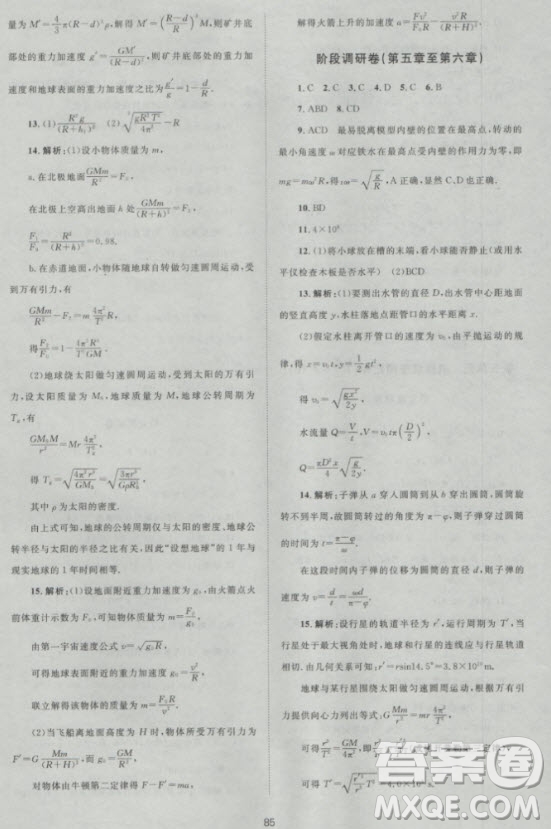 量为 M′=4/3 π(R-d)³=((R-d)/R)³M, 则矿井底
部处的重力加速度 g′=GM′/(R-d)², 则矿井底部处的重力
加速度和地球表面的重力加速度之比为 g′/g=1-d/R
13.(1) R²g/(R+h₁)² (2) ∛(gR²T²/4π²)-R
14.解析:(1)设小物体质量为 m,
a.在北极地面 GMm/R²=F₀,
在北极上空高出地面 h 处 GMm/(R+h)²=F₁,
F₁/F₀=R²/(R+h)²=0.98,
b.在赤道地面,小物体随地球自转做匀速圆周运动,受到
万有引力,有
GMm/R²-F₂=m 4π²/T² R,
得 F₂/F₀=1-4π²R³/T²GM.
(2)地球绕太阳做匀速圆周运动,受到太阳的万有引
力,设太阳质量为
GMₛM/r²=Mr 4π²/Tₑ²,
得 Tₑ=√(4π²r³/GMₛ)=√(3πr³/GρRₛ³),
其中 ρ 为太阳的密度.
由上式可知,地球的公转周期仅与太阳的密度、地球公
转半径与太阳的半径之比有关,因此“设想地球”的 1 年与
现实地球的 1 年时间相同.
15.解析:(1)设地面附近重力加速度为 g₀,由火箭点火
前体重计示数为 F₀,可知物体质量为 m=F₀/g₀
由第一宇宙速度公式 v=√(g₀R)
可得地球表面附近的重力加速度 g₀=v²/R
联立解得该物体的质量为 m=F₀R/v²
(2)当飞船离地面高度为 H 时,物体所受万有引力为
F′=G Mm/(R+H)²
对物体由牛顿第二定律得 F-F′=ma,
解得火箭上升的加速度 a=Fv²/F₀R-v²R/(R+H)².
阶段调研卷(第五章至第六章)
1.C 2.C 3.C 4.C 5.C 6.B
7.ABD 8.CD
9.ACD 最易脱离模型内壁的位置在最高点,转动的
最小角速度 ω 对应铁水在最高点受内壁的作用力为零,即
10.BD
12.(1)将小球放在槽的末端,看小球能否静止(或用水
平仪检查木板是否水平) (2)BCD
13.解析:(1)要测出水管的直径 D,出水管中心距地面
的竖直高度 y,水柱落地点到管口的水平距离 x.
(2)假定水柱离开管口的速度为 v₀,由平抛运动的规
律,得 x=v₀t,y=1/2 gt²
得 v₀=x√(g/2y),
水流量 Q=V/t,V=v₀tπ(D/2)²
Q=πD²x/4 √(g/2y).
14.解析:子弹从 a 穿入圆筒到从 b 穿出圆筒,圆筒旋
转不到半周,故圆筒转过的角度为 π-φ,则子弹穿过圆筒
在这段时间内子弹的位移为圆筒的直径 d,则子弹的速
度为 v=d/t=dω/(π-φ).
15.解析:设行星的轨道半径为 r′,运行周期为 T′,当
行星处于最大视角处时,地球和行星的连线应与行星轨道
地球与某行星围绕太阳做匀速圆周运动,万有引力提
供向心力列出等式 G Mm/r²=mr 4π²/T²,
85
答案圈
MXQE.COM